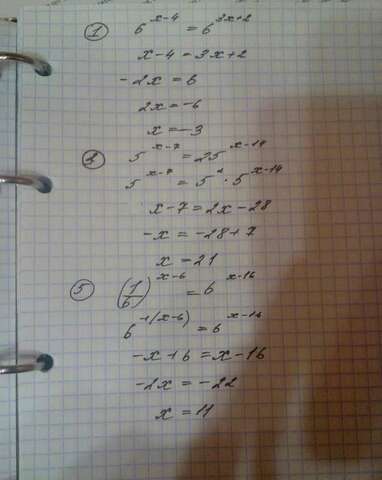 ① 6^(x-4) = 6^(3x+2)
x-4 = 3x+2
-2x = 6
2x = -6
x = -3
② 5^(x-7) = 25^(x-14)
5^(x-7) = 5^2 · 5^(x-14)
x-7 = 2x-28
-x = -28+7
x = 21
⑤ (1/6)^(x-6) = 6^(x-16)
6^(-1(x-6)) = 6^(x-16)
-x+6 = x-16
-2x = -22
x = 11